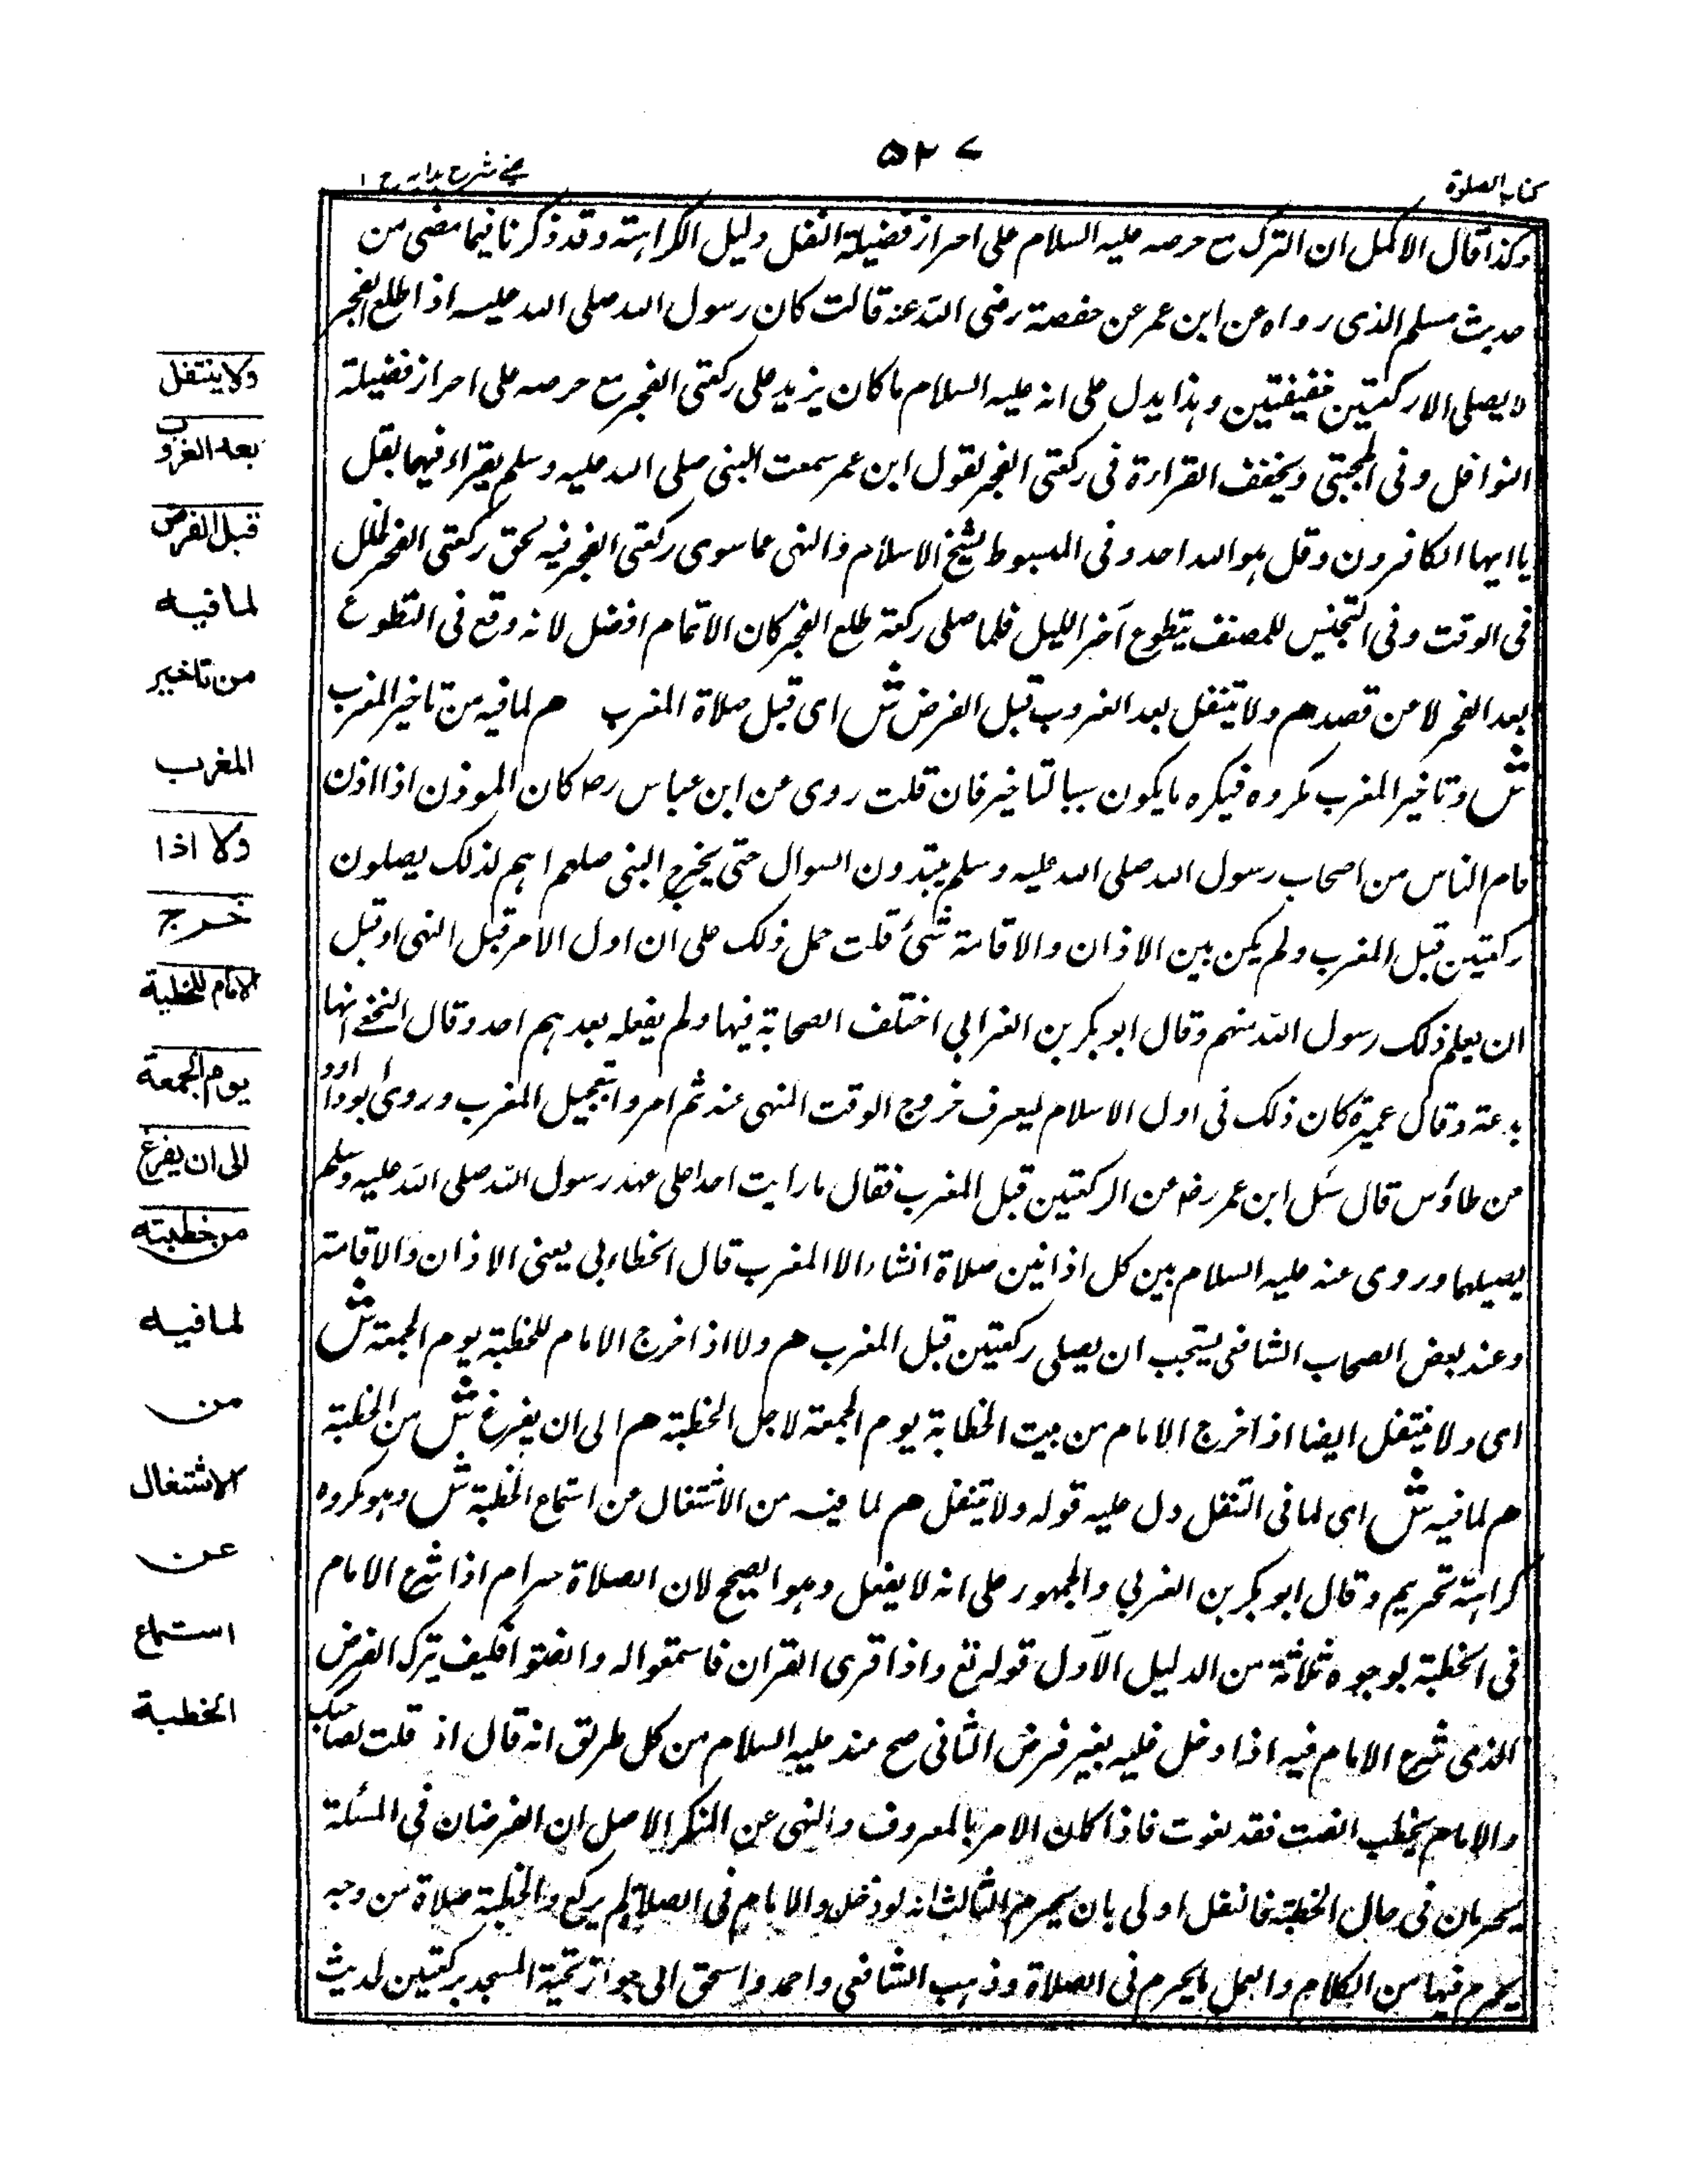 كتاب الصلوة
۵۲۷
عينى شرح هدايه ج ۱
وكذا قال الاكمل ان الترك مع حرصه عليه السلام على احراز فضيلة النفل دليل الكراهة وقد ذكرنا فيما مضى من
حديث مسلم الذى رواه عن ابن عمر عن حفصة رضى الله عنه قالت كان رسول الله صلى الله عليه اذا طلع الفجر
لا يصلى الا ركعتين خفيفتين وهذا يدل على انه عليه السلام ما كان يزيد على ركعتى الفجر مع حرصه على احراز فضيلة
النوافل وفى المجتبى ويخفف القراءة فى ركعتى الفجر لقول ابن عمر سمعت النبى صلى الله عليه وسلم يقراء فيهما بقل
يا ايها الكافرون وقل هو الله احد وفى المبسوط لشيخ الاسلام والنهى عما سوى ركعتى الفجر فيه لحق ركعتى الفجر لا لخلل
فى الوقت وفى التجنيس للمصنف يتطوع آخر الليل فلما صلى ركعة طلع الفجر كان الاتمام افضل لانه وقع فى التطوع
بعد الفجر لا من قصد هم ولا يتنفل بعد الغروب قبل الفرض ش اى قبل صلاة المغرب هم لما فيه من تاخير المغرب
ش وتاخير المغرب مكروه فيكره ما يكون سببا لتاخير فان قلت روى عن ابن عباس رض كان الموذن اذا اذن
قام الناس من اصحاب رسول الله صلى الله عليه وسلم يبتدرون السوال حتى يخرج النبى صلعم اهم لذلك يصلون
ركعتين قبل المغرب ولم يكن بين الاذان والاقامة شئ قلت حمل ذلك على ان اول الامر قبل النهى او قبل
ان يعلم ذلك رسول الله منهم وقال ابو بكر بن العرابى اختلف الصحابة فيها ولم يفعله بعدهم احد وقال النخعى انها
بدعة وقال عميرة كان ذلك فى اول الاسلام ليعرف خروج الوقت المنهى عنه ثم امروا بتعجيل المغرب وروى ابو داود
من طاؤس قال سئل ابن عمر رض عن الركعتين قبل المغرب فقال ما رايت احدا على عهد رسول الله صلى الله عليه وسلم
يصيلهما وروى عنه عليه السلام بين كل اذانين صلاة انشاء الا المغرب قال الخطاءبى يعنى الاذان والاقامة
وعند بعض اصحاب الشافعى يستحب ان يصلى ركعتين قبل المغرب هم ولا اذا خرج الامام للخطبة يوم الجمعة ش
اى ولا يتنفل ايضا اذا خرج الامام من بيت الخطابة يوم الجمعة لاجل الخطبة هم الى ان يفرغ ش من الخطبة
هم لما فيه ش اى لما فى التنفل دل عليه قوله ولا يتنفل هم لما فيه من الاشتغال عن استماع الخطبة ش وهو مكروه
كراهة تحريم وقال ابو بكر بن العربى والجمهور على انه لا يفعل وهو الصحيح لان الصلاة حرام اذا شرع الامام
فى الخطبة لوجوه ثلاثة من الدليل الآول قوله تع واذا قرى القران فاستمعوا له وانصتوا فكيف يترك الفرض
الذى شرع الامام فيه اذا دخل عليه بغير فرض الثانى صح عنه عليه السلام من كل طريق انه قال اذ قلت لصاحبك
والامام يخطب انصت فقد لغوت فاذا كان الامر بالمعروف والنهى عن المنكر الاصل ان الفرضان فى المسئلة
يحرمان فى حال الخطبة فالنفل اولى بان يحرم الثالث انه لو دخل والامام فى الصلاة لم يركع والخطبة صلاة من وجه
يحرم فيها من الكلام والعمل ما يحرم فى الصلاة وذهب الشافعى واحمد واسحق الى جواز تحية المسجد بركعتين لحديث
ولا ينتفل
بعد الغروب
قبل الفرض
لما فيه
من تاخير
المغرب
ولا اذا
خرج
الامام للخطبة
يوم الجمعة
الى ان يفرغ
من خطبته
لما فيه
من
الاشتغال
عن
استماع
الخطبة